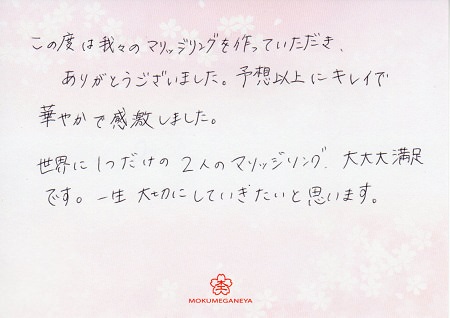 この度は我々のマリッジリングを作っていただき、
ありがとうございました。予想以上にキレイで
華やかで感激しました。
世界に1つだけの2人のマリッジリング、大大大満足
です。一生大切にしていきたいと思います。
MOKUMEGANEYA